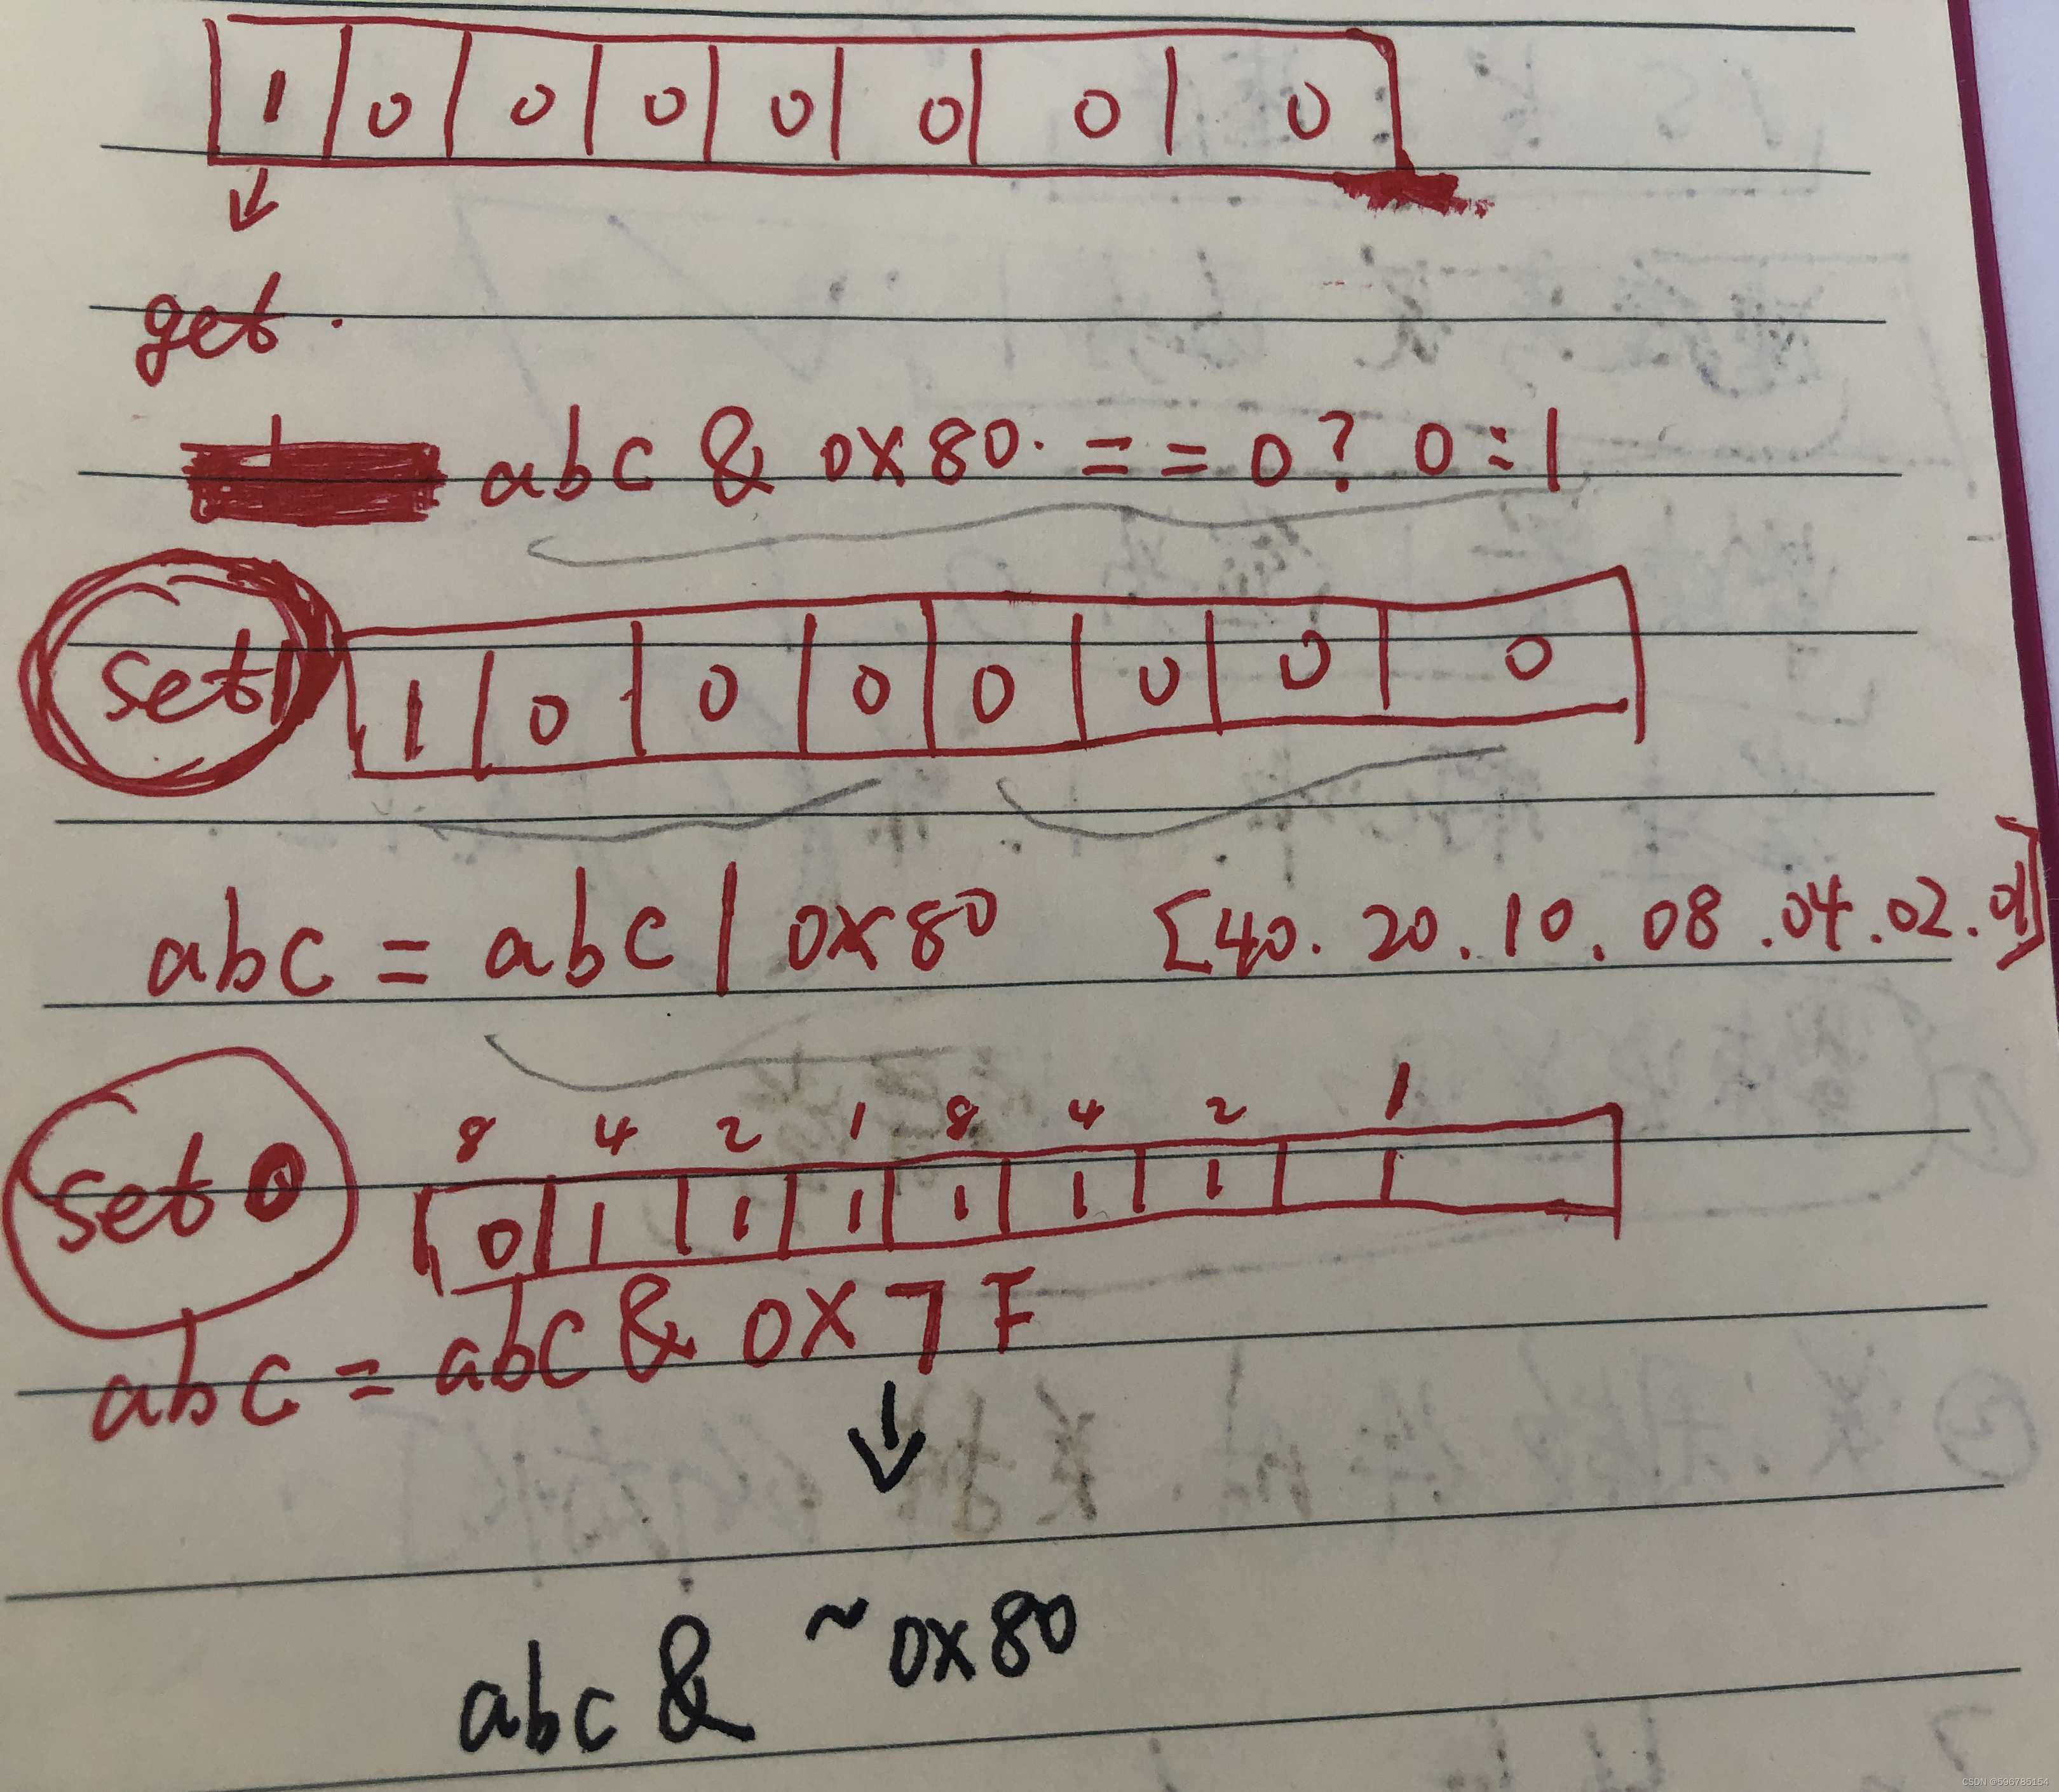 1 0 0 0 0 0 0 0
get.
abc & 0X80. == 0? 0:1
set1 1 0 0 0 0 0 0 0
abc = abc | 0x80 [40. 20. 10. 08.04.02.01]
8 4 2 1 8 4 2 1
set 0 0 1 1 1 1 1 1 1
abc = abc & 0X7F
↓
abc & ~0x80
CSDN @596785154